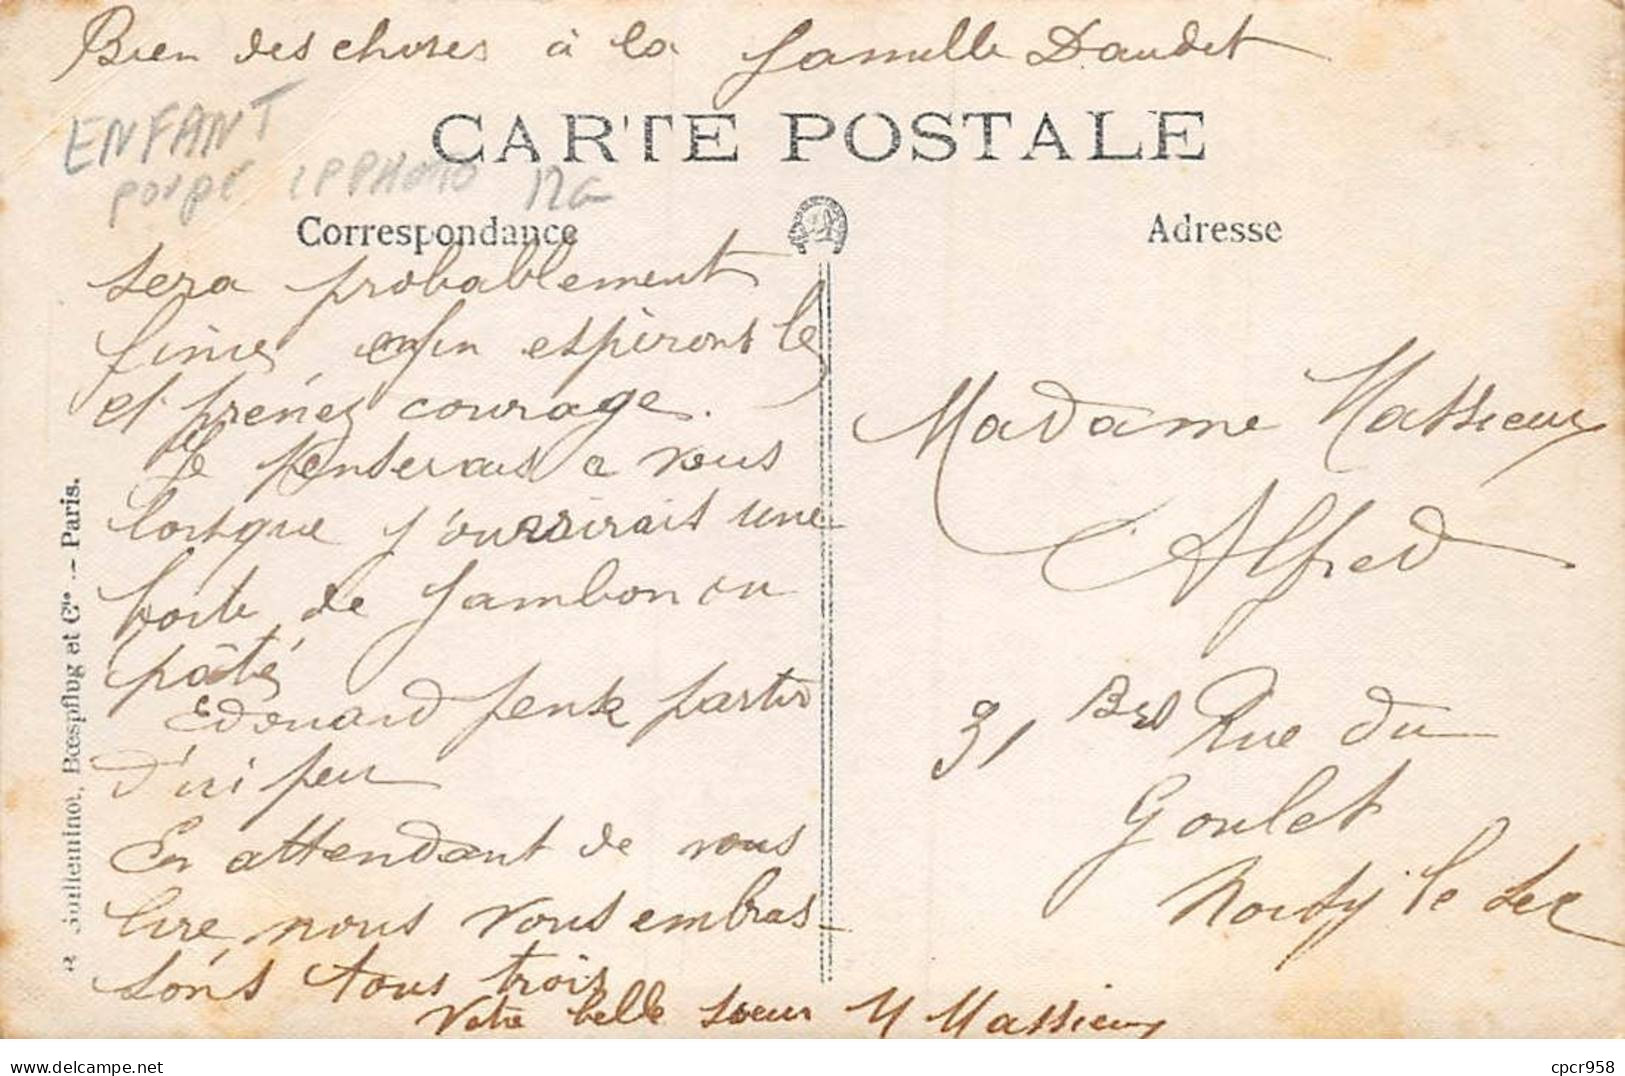 Bien des choses à la famille Daudet
CARTE POSTALE
ENFANT
CPPHOTO
Correspondance
Adresse
sera probablement
finie, enfin espérons le
et prénez courage.
Je penserais a vous
lorsque j'ouvrirait une
boite de jambon ou
pâté
Edouard pense partir
d'ici peu
En attendant de vous
lire nous vous embras-
sons tous trois
Votre belle soeur M Massieux
Madame Massieux
Alfred
31 Bis Rue du
Goulet
Noisy le Sec
R. Guilleminot, Bœspflug et Cie. – Paris.
https://www.delcampe.net
cpcr958